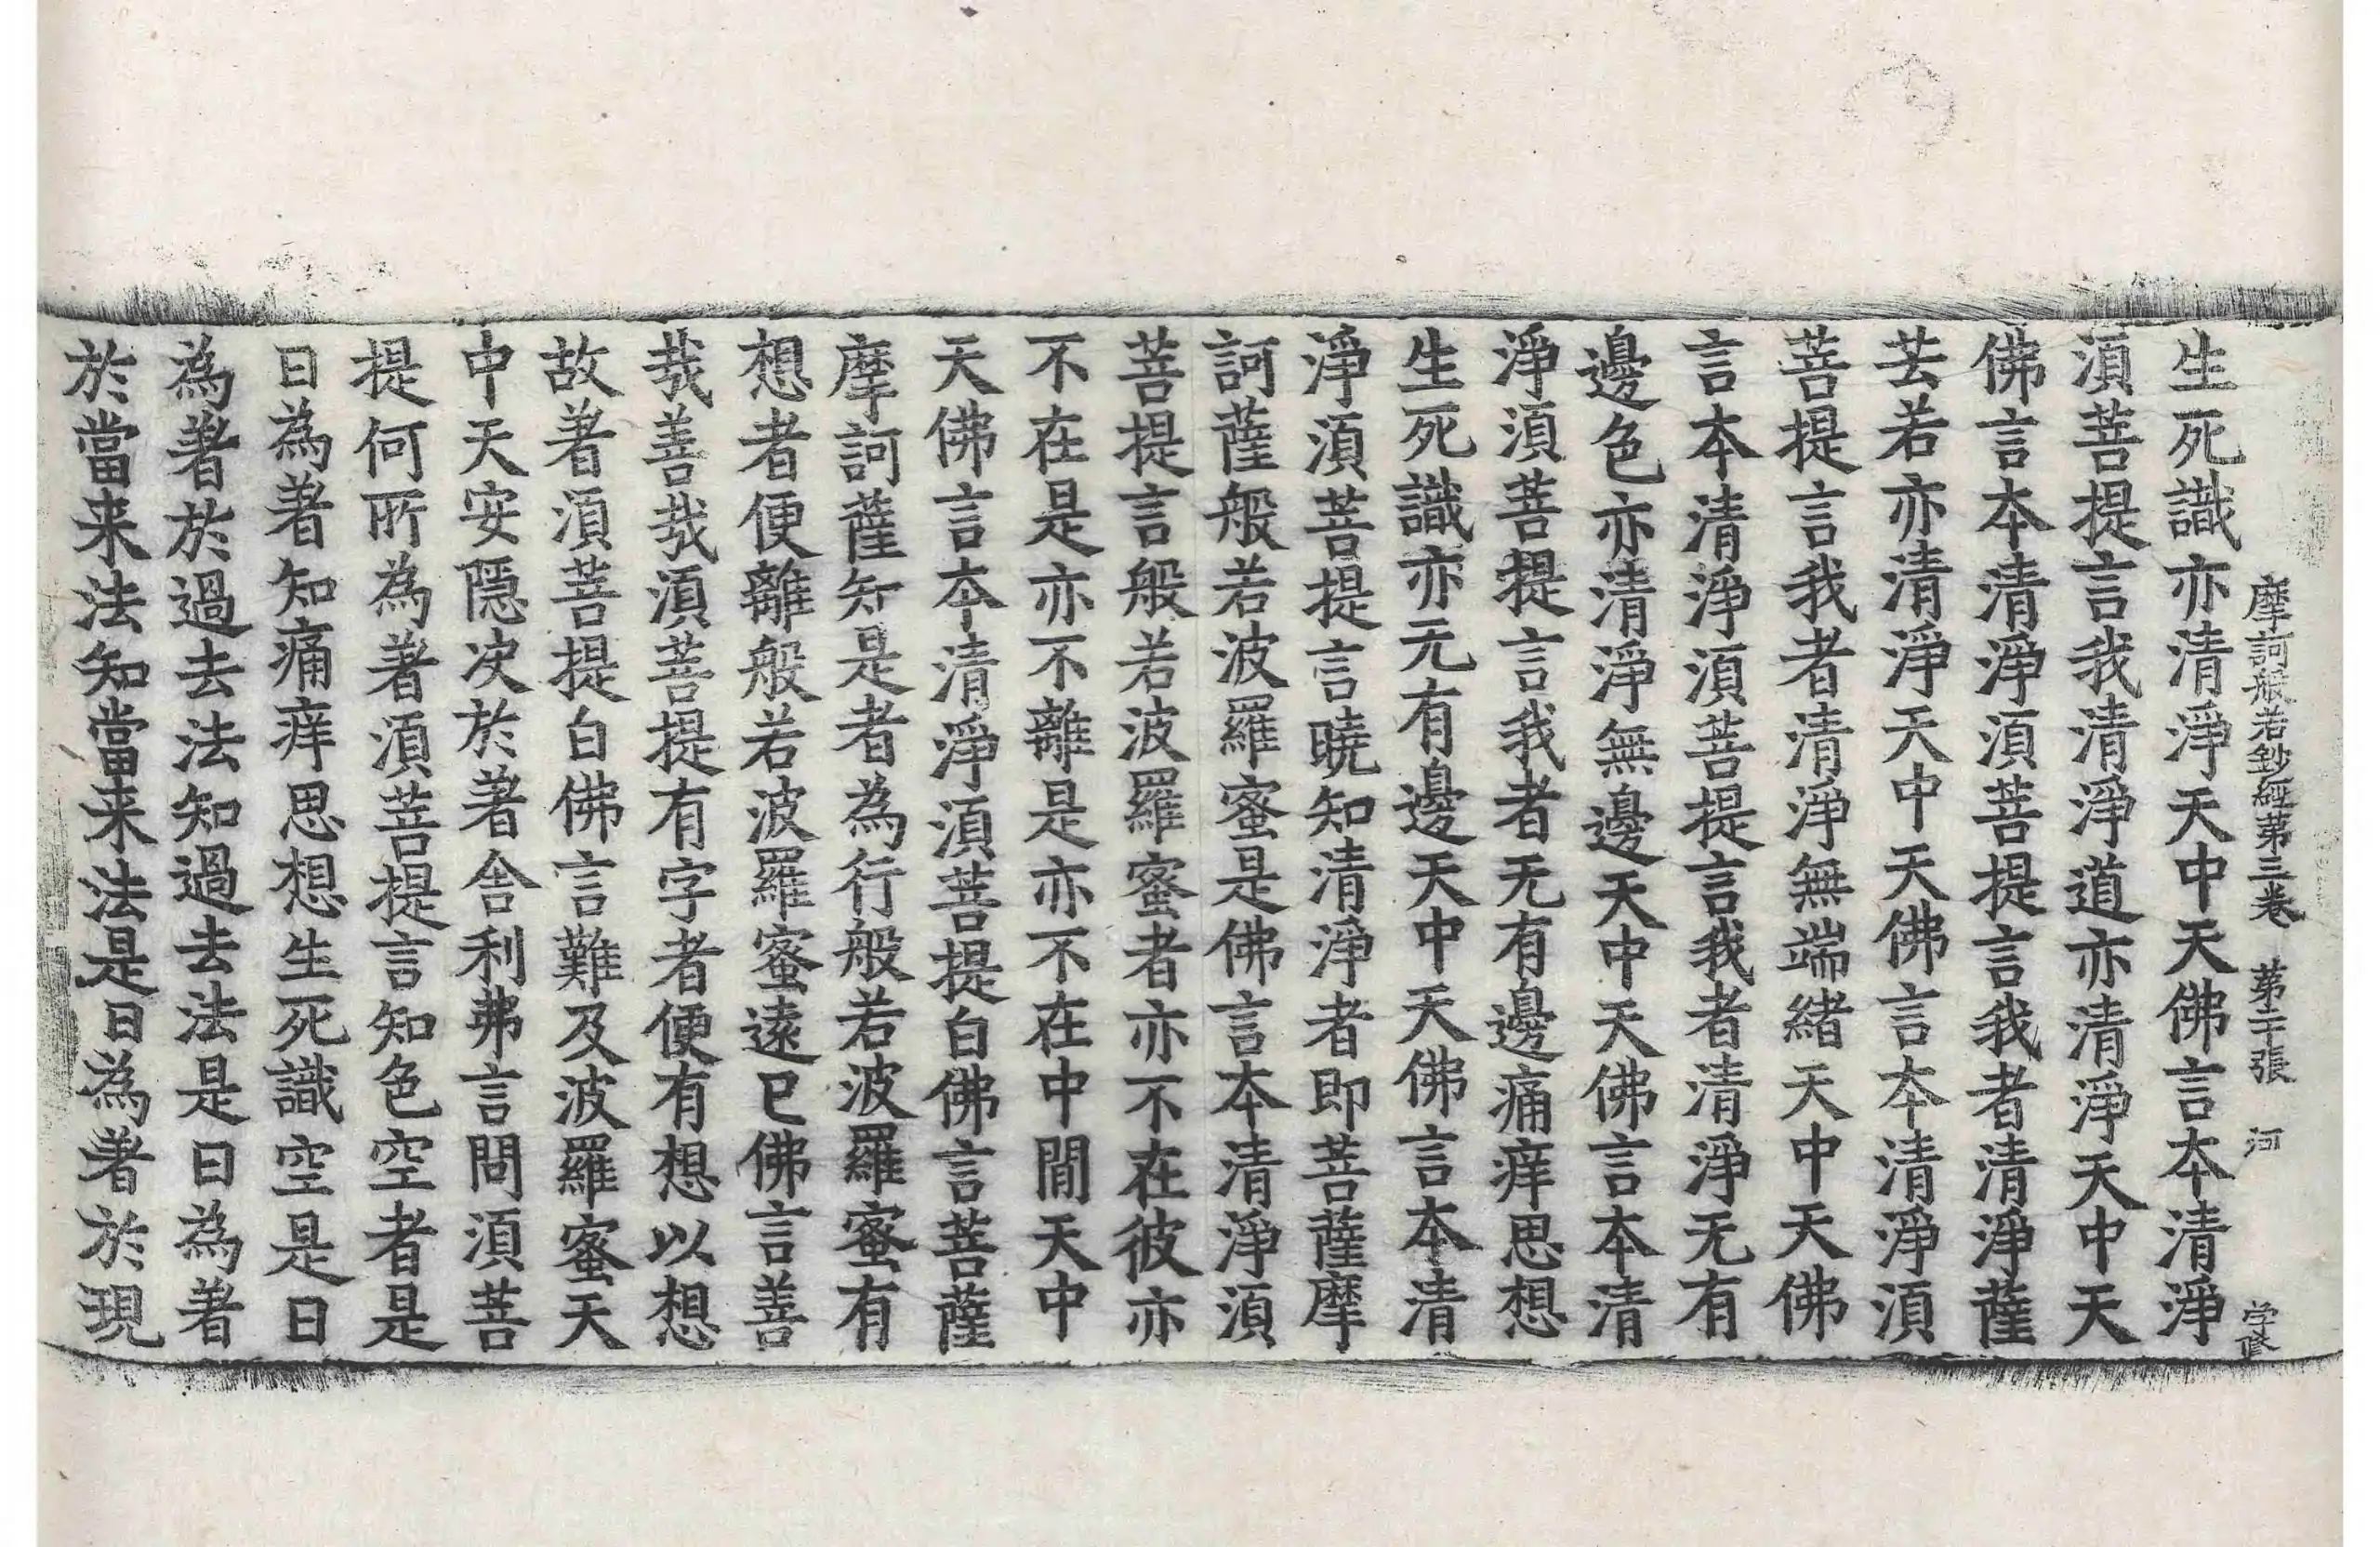 摩訶般若鈔經第三卷　第二十張　河
生死識亦清淨天中天佛言本清淨
須菩提言我清淨道亦清淨天中天
佛言本清淨須菩提言我者清淨薩
芸若亦清淨天中天佛言本清淨須
菩提言我者清淨無端緒天中天佛
言本清淨須菩提言我者清淨无有
邊色亦清淨無邊天中天佛言本清
淨須菩提言我者无有邊痛痒思想
生死識亦无有邊天中天佛言本清
淨須菩提言曉知清淨者即菩薩摩
訶薩般若波羅蜜是佛言本清淨須
菩提言般若波羅蜜者亦不在彼亦
不在是亦不離是亦不在中閒天中
天佛言本清淨須菩提白佛言菩薩
摩訶薩知是者為行般若波羅蜜有
想者便離般若波羅蜜遠已佛言善
哉善哉須菩提有字者便有想以想
故著須菩提白佛言難及波羅蜜天
中天安隱决於著舍利弗言問須菩
提何所為著須菩提言知色空者是
曰為著知痛痒思想生死識空是曰
為著於過去法知過去法是曰為著
於當来法知當来法是曰為著於現